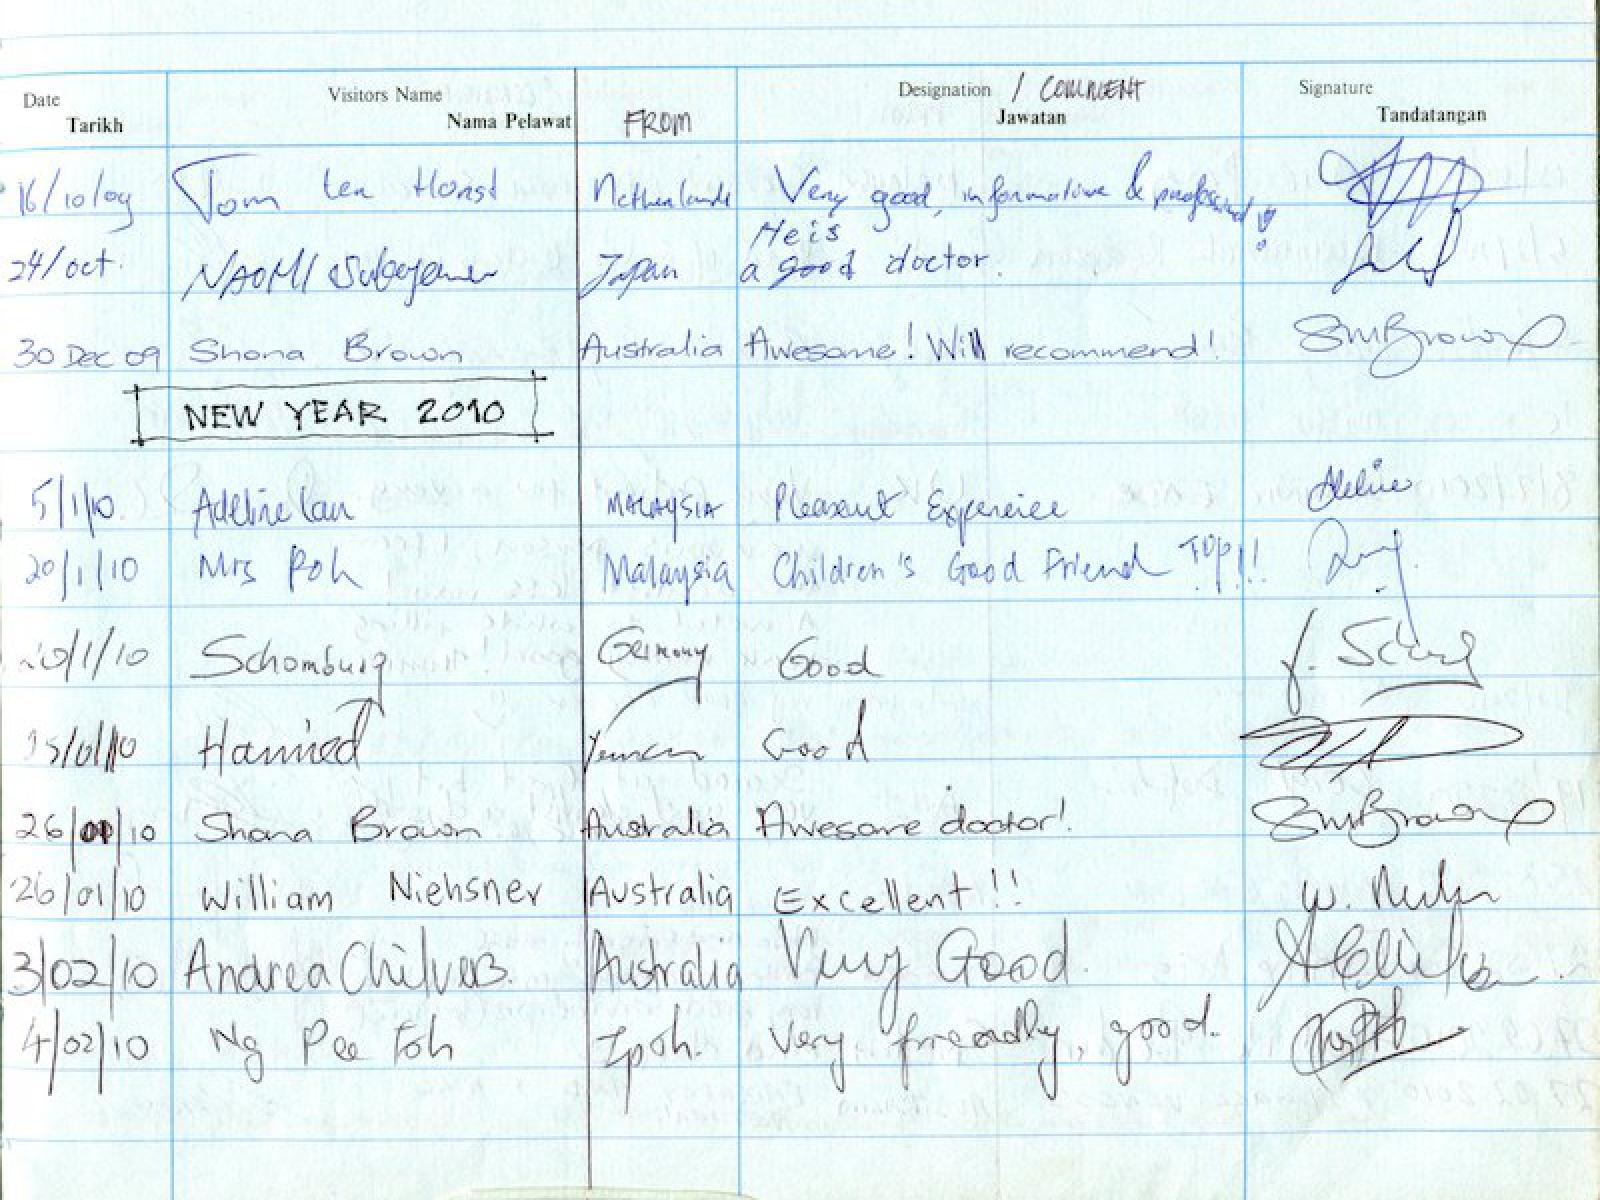 Date Visitors Name Designation / COMMENT Signature
Tarikh Nama Pelawat FROM Jawatan Tandatangan
16/10/09 Tom ten Horst Netherlands Very good, informative & professional!!
He is
24/oct. NAOMI Japan a good doctor.
30 Dec 09 Shona Brown Australia Awesome! Will recommend! SMBrown
NEW YEAR 2010
5/1/10 Adeline Lau MALAYSIA Pleasant Experience Adeline
20/1/10 Mrs Poh Malaysia Children's Good Friend TOP!!!
20/1/10 Schomburg Germany Good
25/01/10 Hamied Yemen Good
26/01/10 Shona Brown Australia Awesome doctor! SMBrown
26/01/10 William Niehsner Australia Excellent!!
3/02/10 Andrea Chilvers. Australia Very Good.
4/02/10 Ng Pee Foh Ipoh. Very friendly, good.